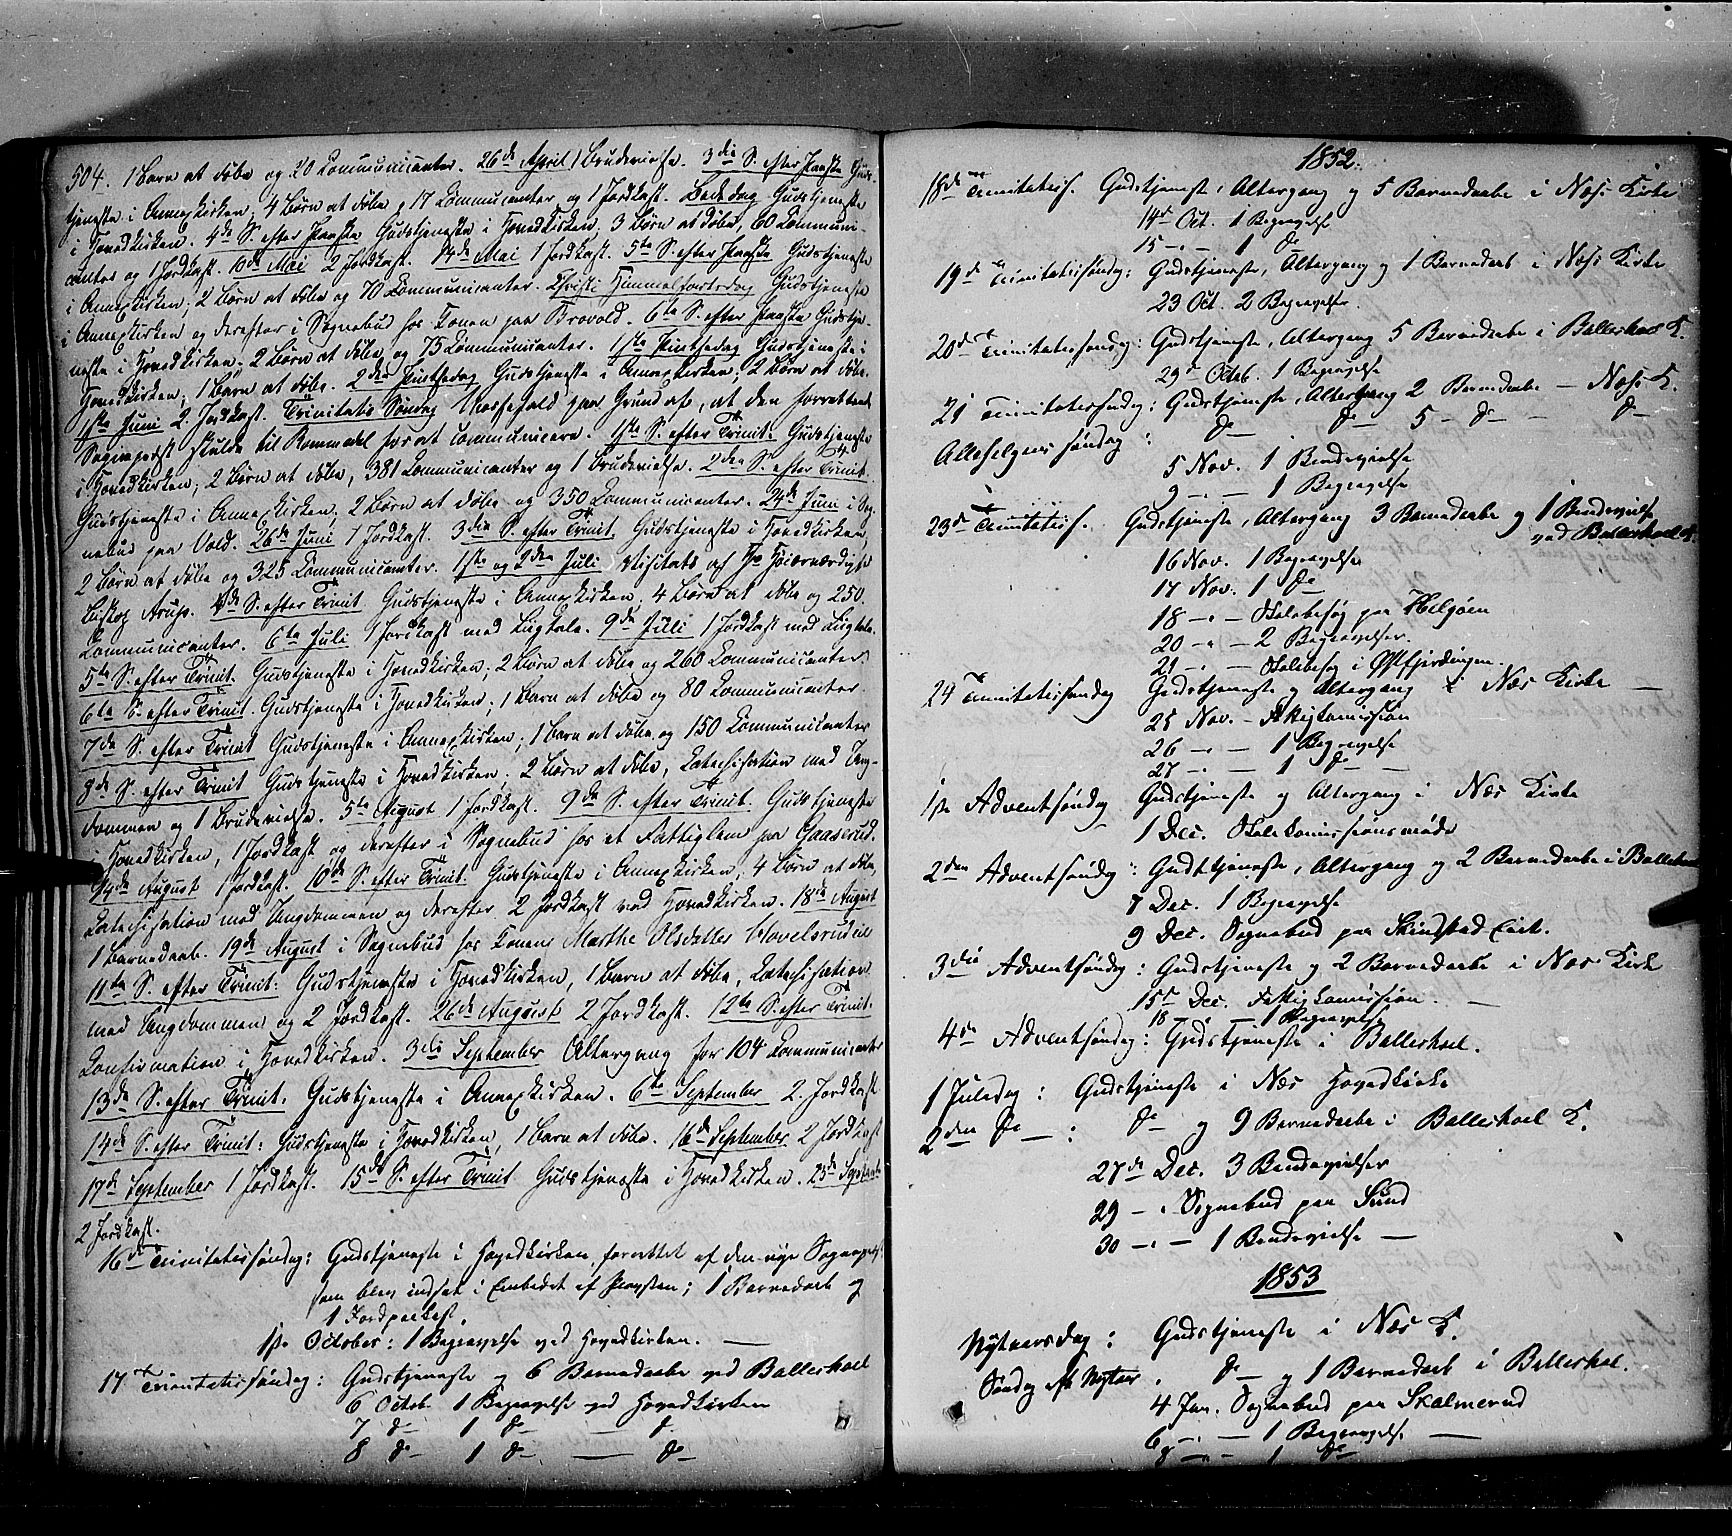 504. 1 Barn at døbe og 20 Communicanter. 26de April 1 Brudevielse. 3die S. efter Paaske Guds-
tjeneste i Annexkirken; 4 Børn at døbe, 17 Communicanter og 1 Jordkast. Bededag Gudstjeneste
i Hovedkirken. 4de S. efter Paaske Gudstjeneste i Hovedkirken, 3 Børn at døbe, 60 Communi-
canter og 1 Jordkast. 10de Mai 2 Jordkast. 14de Mai 1 Jordkast. 5te S. efter Paaske Gudstjeneste
i Annexkirken; 2 Børn at døbe og 70 Communicanter. Christi Himmelfartsdag Gudstjeneste
i Annexkirken og derefter i Sognebud hos Konen paa Brovold. 6te S. efter Paaske Gudstje-
neste i Hovedkirken; 2 Børn at døbe og 75 Communicanter. 1ste Pintsedag Gudstjeneste i
Hovedkirken; 1 Barn at døbe. 2den Pintsedag Gudstjeneste i Annexkirken; 2 Børn at døbe.
1ste Juni 2 Jordkast. Trinitatis Søndag Messefald paa Grund af, at den forrettende
Sognepræst skulde til Romedal for at communicere. 1ste S. efter Trinit. Gudstjeneste
i Hovedkirken; 2 Børn at døbe, 381 Communicanter og 1 Brudevielse. 2den S. efter Trinit.
Gudstjeneste i Annexkirken, 2 Børn at døbe og 350 Communicanter. 24de Juni i Sog-
nebud paa Vold. 26de Juni 1 Jordkast. 3die S. efter Trinit. Gudstjeneste i Hovedkirken,
2 Børn at døbe og 325 Communicanter. 1ste og 2den Juli Visitats af Hr. Høiærværdighed
Biskop Arup. 4de S. efter Trinit. Gudstjeneste i Annexkirken, 4 Børn at døbe og 250
Communicanter. 6te Juli 1 Jordkast med Ligtale. 9de Juli 1 Jordkast med Ligtale.
5te S. efter Trinit. Gudstjeneste i Hovedkirken; 2 Børn at døbe og 260 Communicanter.
6te S. efter Trinit. Gudstjeneste i Hovedkirken; 1 Barn at døbe og 80 Communicanter.
7de S. efter Trinit Gudstjeneste i Annexkirken; 1 Barn at døbe og 150 Communicanter
8de S. efter Trinit Gudstjeneste i Hovedkirken; 2 Børn at døbe, Catechisation med Ung-
dommen og 1 Brudevielse. 5te August 1 Jordkast. 9de S. efter Trinit. Gudstjeneste
i Hovedkirken, 1 Jordkast og derefter i Sognebud hos et Fattiglem paa Gaaserud.
14de August 1 Jordkast. 10de S. efter Trinit. Gudstjeneste i Annexkirken, 4 Børn at døbe,
Catechisation med Ungdommen og derefter 2 Jordkast ved Hovedkirken. 18de August
1 Barnedaab. 19de August i Sognebud hos Konen Marthe Olsdatter Hovelsrudeie
11te S. efter Trinit: Gudstjeneste i Hovedkirken, 1 Barn at døbe, Catechisation
med Ungdommen og 2 Jordkast. 26de August 2 Jordkast. 12te S. efter Trinit.
Confirmation i Hovedkirken. 3die September Altergang for 104 Communicanter
13de S. efter Trinit. Gudstjeneste i Annexkirken. 6te September 2 Jordkast
14de S. efter Trinit: Gudstjeneste i Hovedkirken, 1 Barn at døbe. 16de September 2 Jordkast
17de September 1 Jordkast. 15de S. efter Trinit Gudstjeneste i Hovedkirken. 25de Septembr
2 Jordkast.
16de Trinitatissøndag: Gudstjeneste i Hovedkirken forrettet af den nye Sognepræst
som blev indsat i Embedet af Provsten; 1 Barnedaab og
1 Jordpaakast.
1ste October: 1 Begravelse ved Hovedkirken.
17 Trinitatissøndag: Gudstjeneste og 6 Barnedaabe ved Ballishoel
6 Octob. 1 Begravelse ved Hovedkirken
7 do 1 do — do
8 do 1 do — do
1852.
18de Trinitatiss. Gudstjeneste, Altergang og 5 Barnedaabe i Næs Kirke
14de Oct. 1 Begravelse
15 — 1 do
19de Trinitatissøndag: Gudstjeneste, Altergang og 1 Barnedaab i Næs Kirke
23 Oct. 2 Begravelser.
20de Trinitatissøndag: Gudstjeneste, Altergang 5 Barnedaabe i Ballishoel K.
29de Octob. 1 Begravelse
21 Trinitatissøndag: Gudstjeneste, Altergang 2 Barnedaabe — Næs K.
Allehelgens søndag: do do 5 do — do
5 Nov. 1 Brudevielse
9 — 1 Begravelse
23de Trinitatiss. Gudstjeneste, Altergang 3 Barnedaabe og 1 Brudevielse
ved Ballishoel K.
16 Nov. 1 Begravelse
17 Nov. 1 do
18 — Skolebesøg paa Helgøen
20 — 2 Begravelser.
21 — Skolebesøg i Østfjerdingen.
24 Trinitatissøndag Gudstjeneste og Altergang i Næs Kirke
25 Nov. — Fattigkomission
26 — 1 Begravelse
27 — 1 do
1ste Adventsøndag Gudstjeneste og Altergang i Næs Kirke
1 Dec. Skolekomissionsmøde
2den Adventsøndag: Gudstjeneste, Altergang og 2 Barnedaabe i Ballishoel
7 Dec. 1 Begravelse
9 Dec. Sognebud paa Skinstad Eie.
3die Adventsøndag: Gudstjeneste og 2 Barnedaabe i Næs Kirke
15de Dec. Fattigkomission.
18 — 1 Begravelse
4de Adventsøndag: Gudstjeneste i Ballishoel.
1 Juledag: Gudstjeneste i Næs Hovedkirke
2den do —: do og 9 Barnedaabe i Ballishoel K.
27de Dec. 3 Brudevielser
29 — Sognebud paa Sund
30 — 1 Brudevielse
1853
Nytaarsdag: Gudstjeneste i Næs K.
Søndag eft. Nytaar. do og 1 Barnedaab i Ballishoel.
4 Jan. Sognebud paa Skalmerud
6 — 1 Begravelse
8 — 1 do